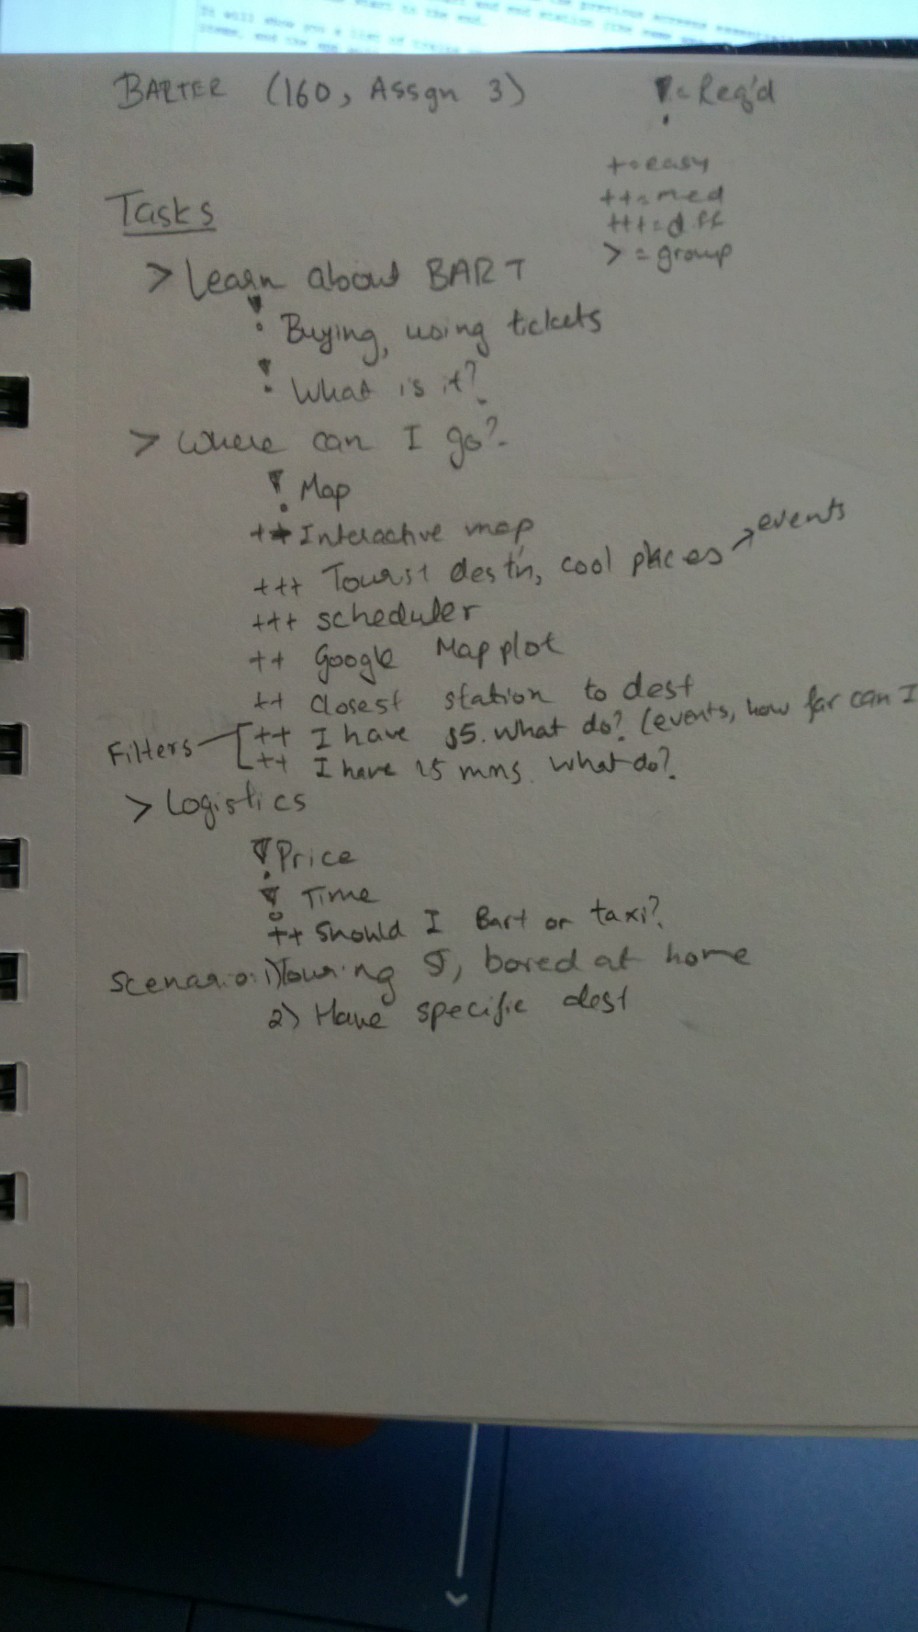 It will show you a list of trains
BARTER (160, Assgn 3)
! = Req'd
+ = easy
++ = med
+++ = diff
> = group
Tasks
> Learn about BART
! Buying, using tickets
! What is it?
> Where can I go?
! Map
++ Interactive map
+++ Tourist dest'n, cool places → events
+++ scheduler
++ Google Map plot
++ Closest station to dest
Filters [ ++ I have $5. What do? (events, how far can I
++ I have 15 mins. What do?
> Logistics
! Price
! Time
++ Should I Bart or taxi?
Scenario: 1) Touring, bored at home
2) Have specific dest